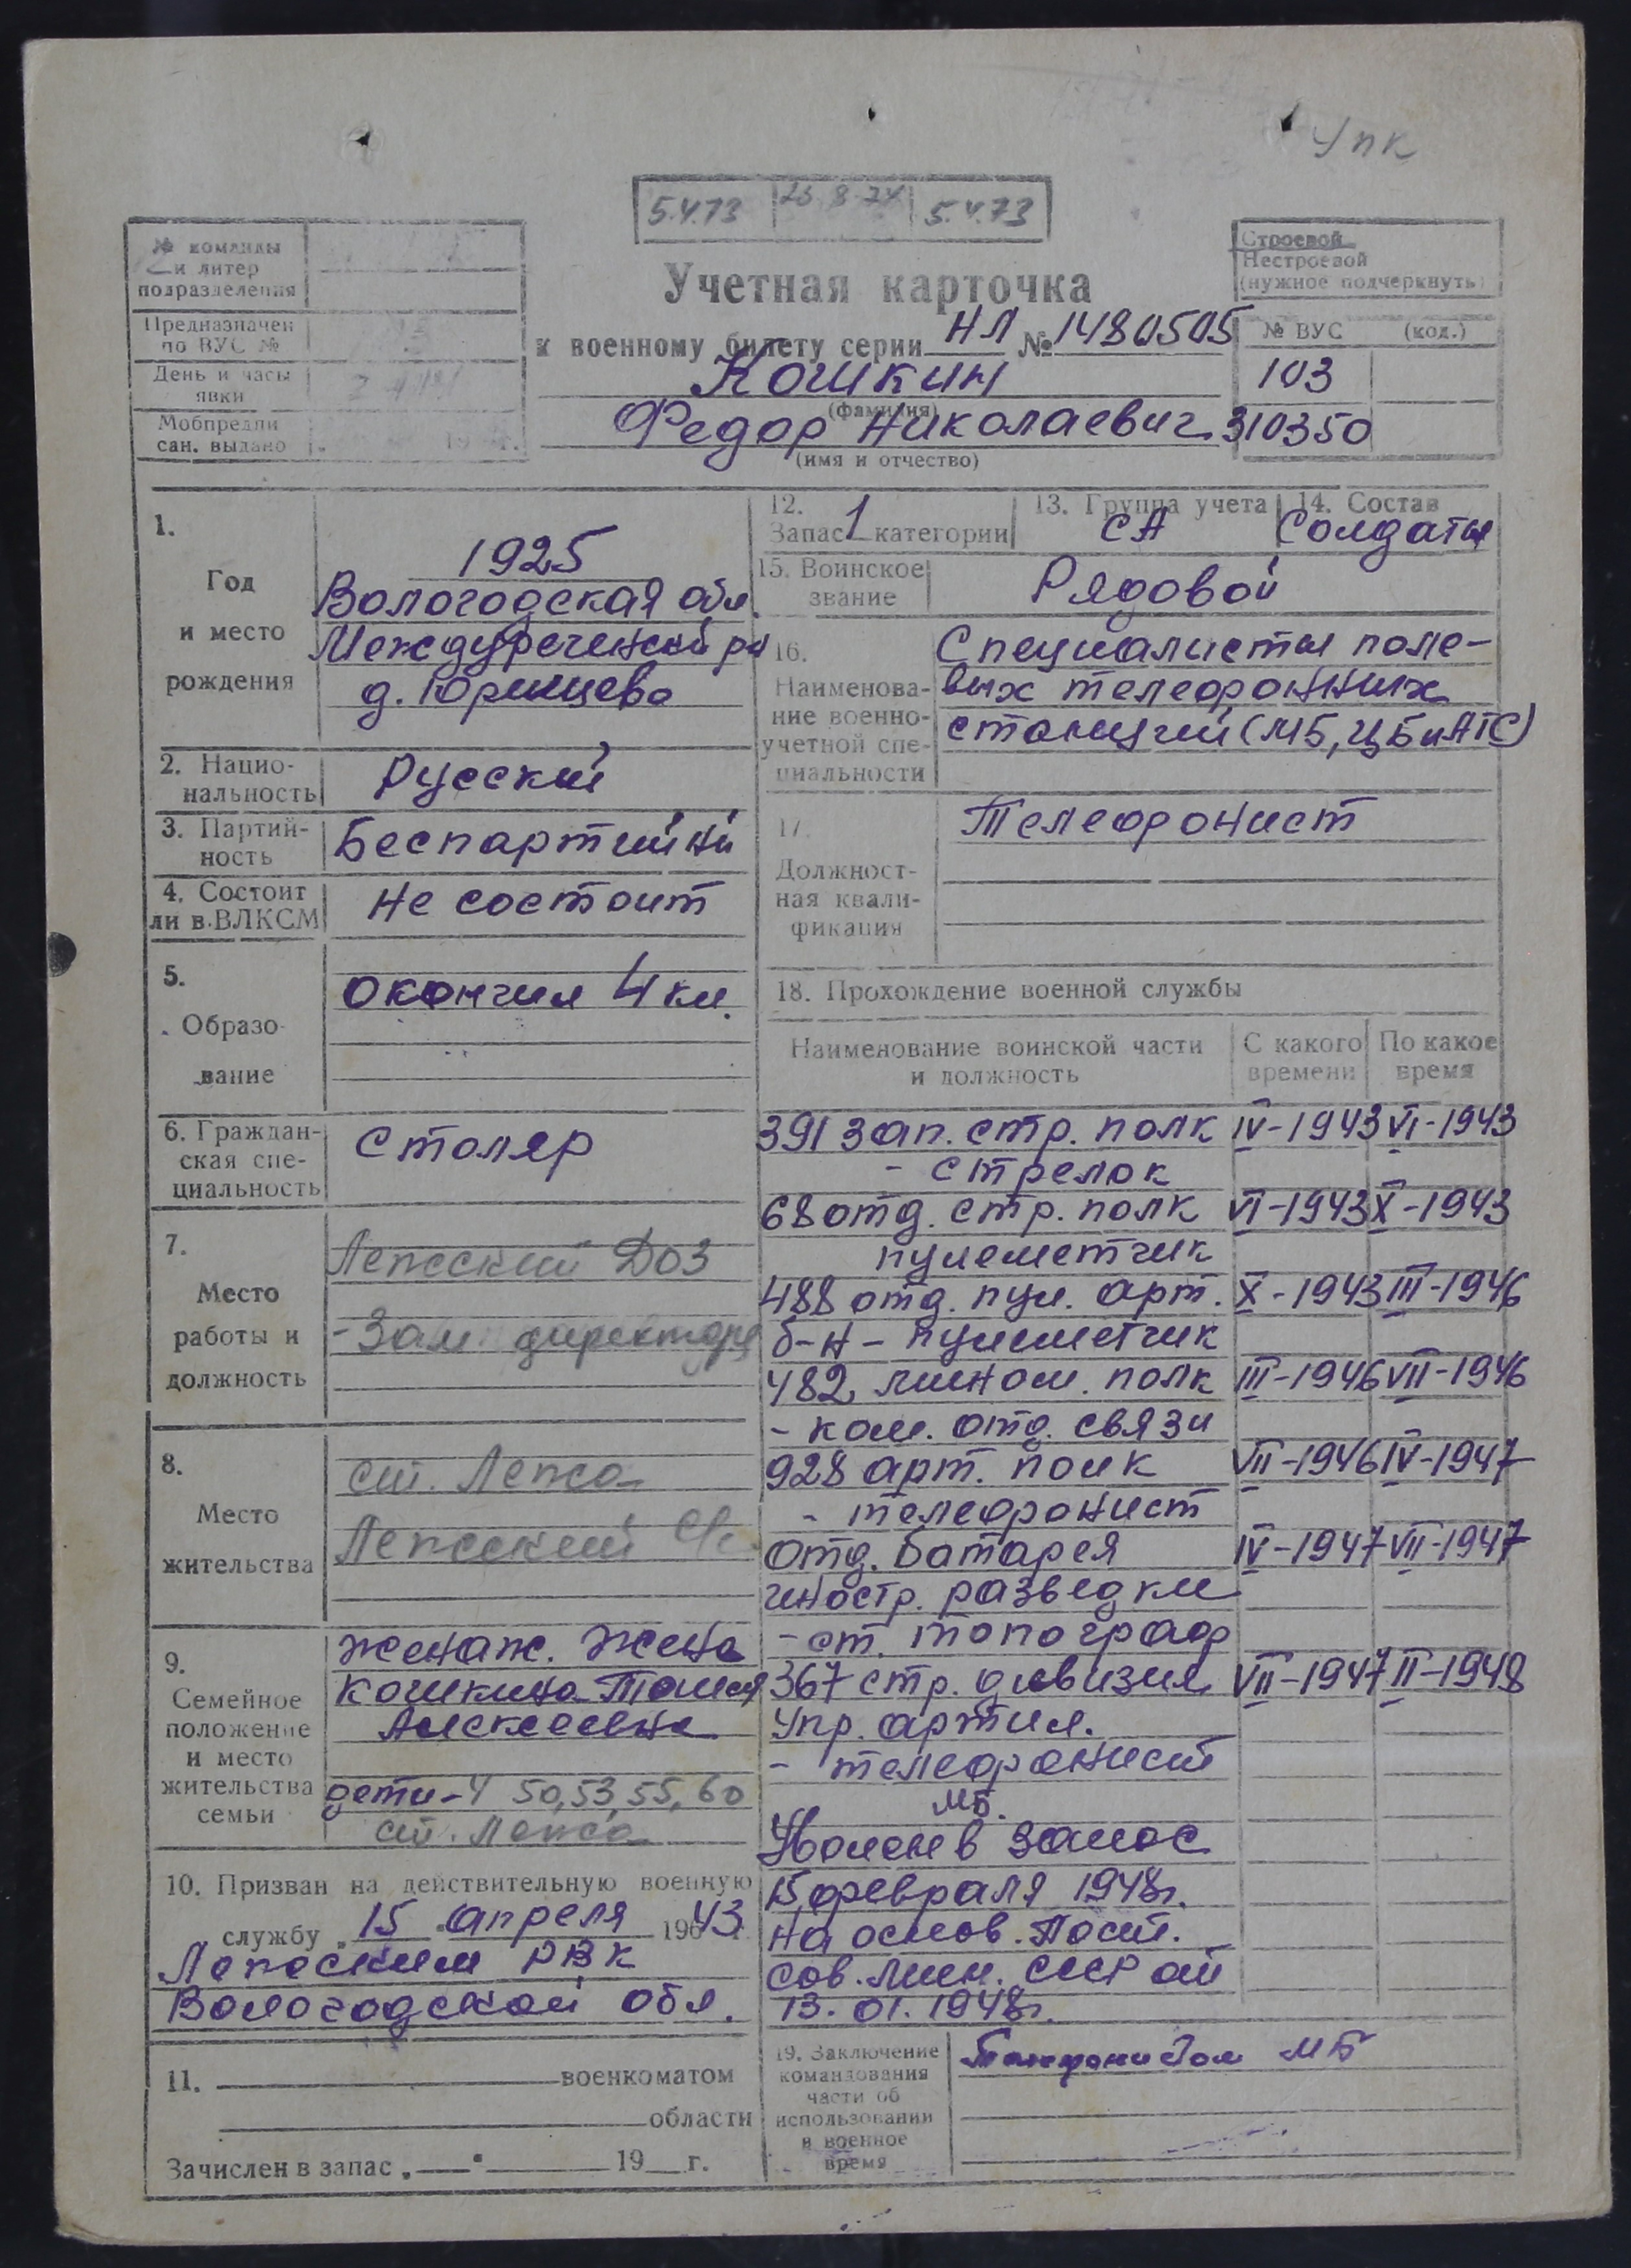 УПК
5.4.73 26.8.74 5.4.73
№ команды
и литер
подразделения
Предназначен
по ВУС №
День и часы
явки
Мобпредпи
сан. выдано
Строевой
Нестроевой
(нужное подчеркнуть)
Учетная карточка
к военному билету серии НЛ № 1480505
Кошкин
(фамилия)
Федор Николаевич
(имя и отчество)
№ ВУС (код.)
103
310350
1.
Год
и место
рождения
1925
Вологодская обл.
Междуреченский рн
д. Юринцево
2. Нацио-
нальность
Русский
3. Партий-
ность
Беспартийный
4. Состоит
ли в ВЛКСМ
Не состоит
5.
Образо-
вание
окончил 4 кл.
6. Граждан-
ская спе-
циальность
столяр
7.
Место
работы и
должность
Лепсский ДОЗ
- Зам. директора
8.
Место
жительства
ст. Лепса
Лепсский
9.
Семейное
положение
и место
жительства
семьи
женат. Жена
Кошкина Таисия
Алексеевна
дети-4 50, 53, 55, 60
ст. Лепса
10. Призван на действительную военную
службу „15 апреля 1943
РВК
Вологодской обл.
11. военкоматом
области
Зачислен в запас „ “ 19 г.
12.
Запас 1 категории
13. Группа учета
СА
14. Состав
Солдаты
15. Воинское
звание
Рядовой
16.
Наименова-
ние военно-
учетной спе-
циальности
Специалисты поле-
вых телефонных
станций (МБ, ЦБ и АТС)
17.
Должност-
ная квали-
фикация
Телефонист
18. Прохождение военной службы
Наименование воинской части
и должность
С какого
времени
По какое
время
391 зап. стр. полк IV-1943 VI-1943
- стрелок
68 отд. стр. полк VI-1943 X-1943
пулеметчик
488 отд. пул. арт. X-1943 III-1946
б-н - пулеметчик
482 мином. полк III-1946 VII-1946
- ком. отд. связи
928 арт. полк VII-1946 IV-1947
- телефонист
отд. батарея IV-1947 VII-1947
иностр. разведки
- ст. топограф
367 стр. дивизия VII-1947 II-1948
упр. артил.
- телефонист
МБ.
Уволен в запас
15 февраля 1948г.
на основ. Пост.
Сов. Мин. СССР от
13.01.1948г.
19. Заключение
командования
части об
использовании
в военное
время
Телефонистом МБ